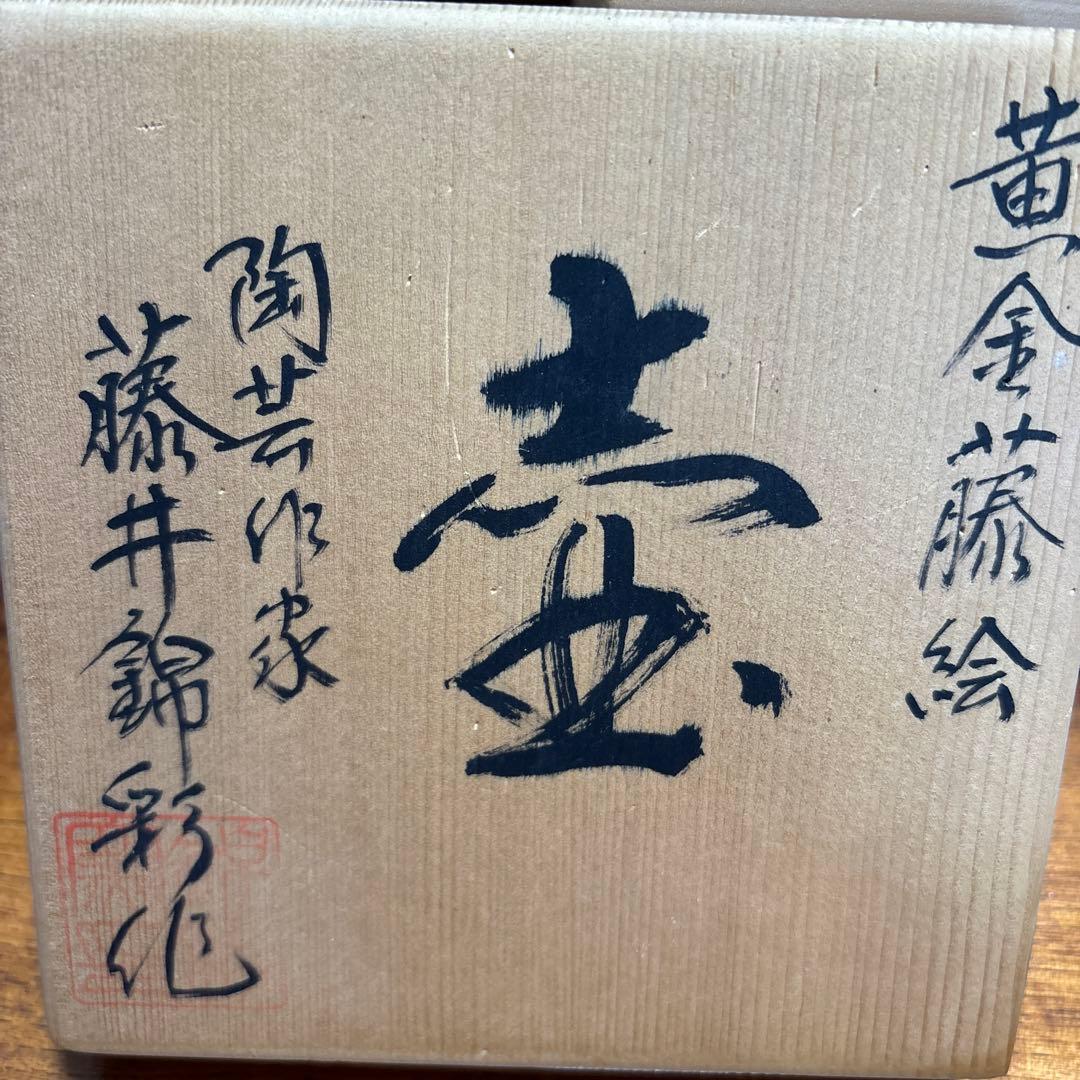 黄金藤絵
壷
陶芸作家
藤井錦彩作